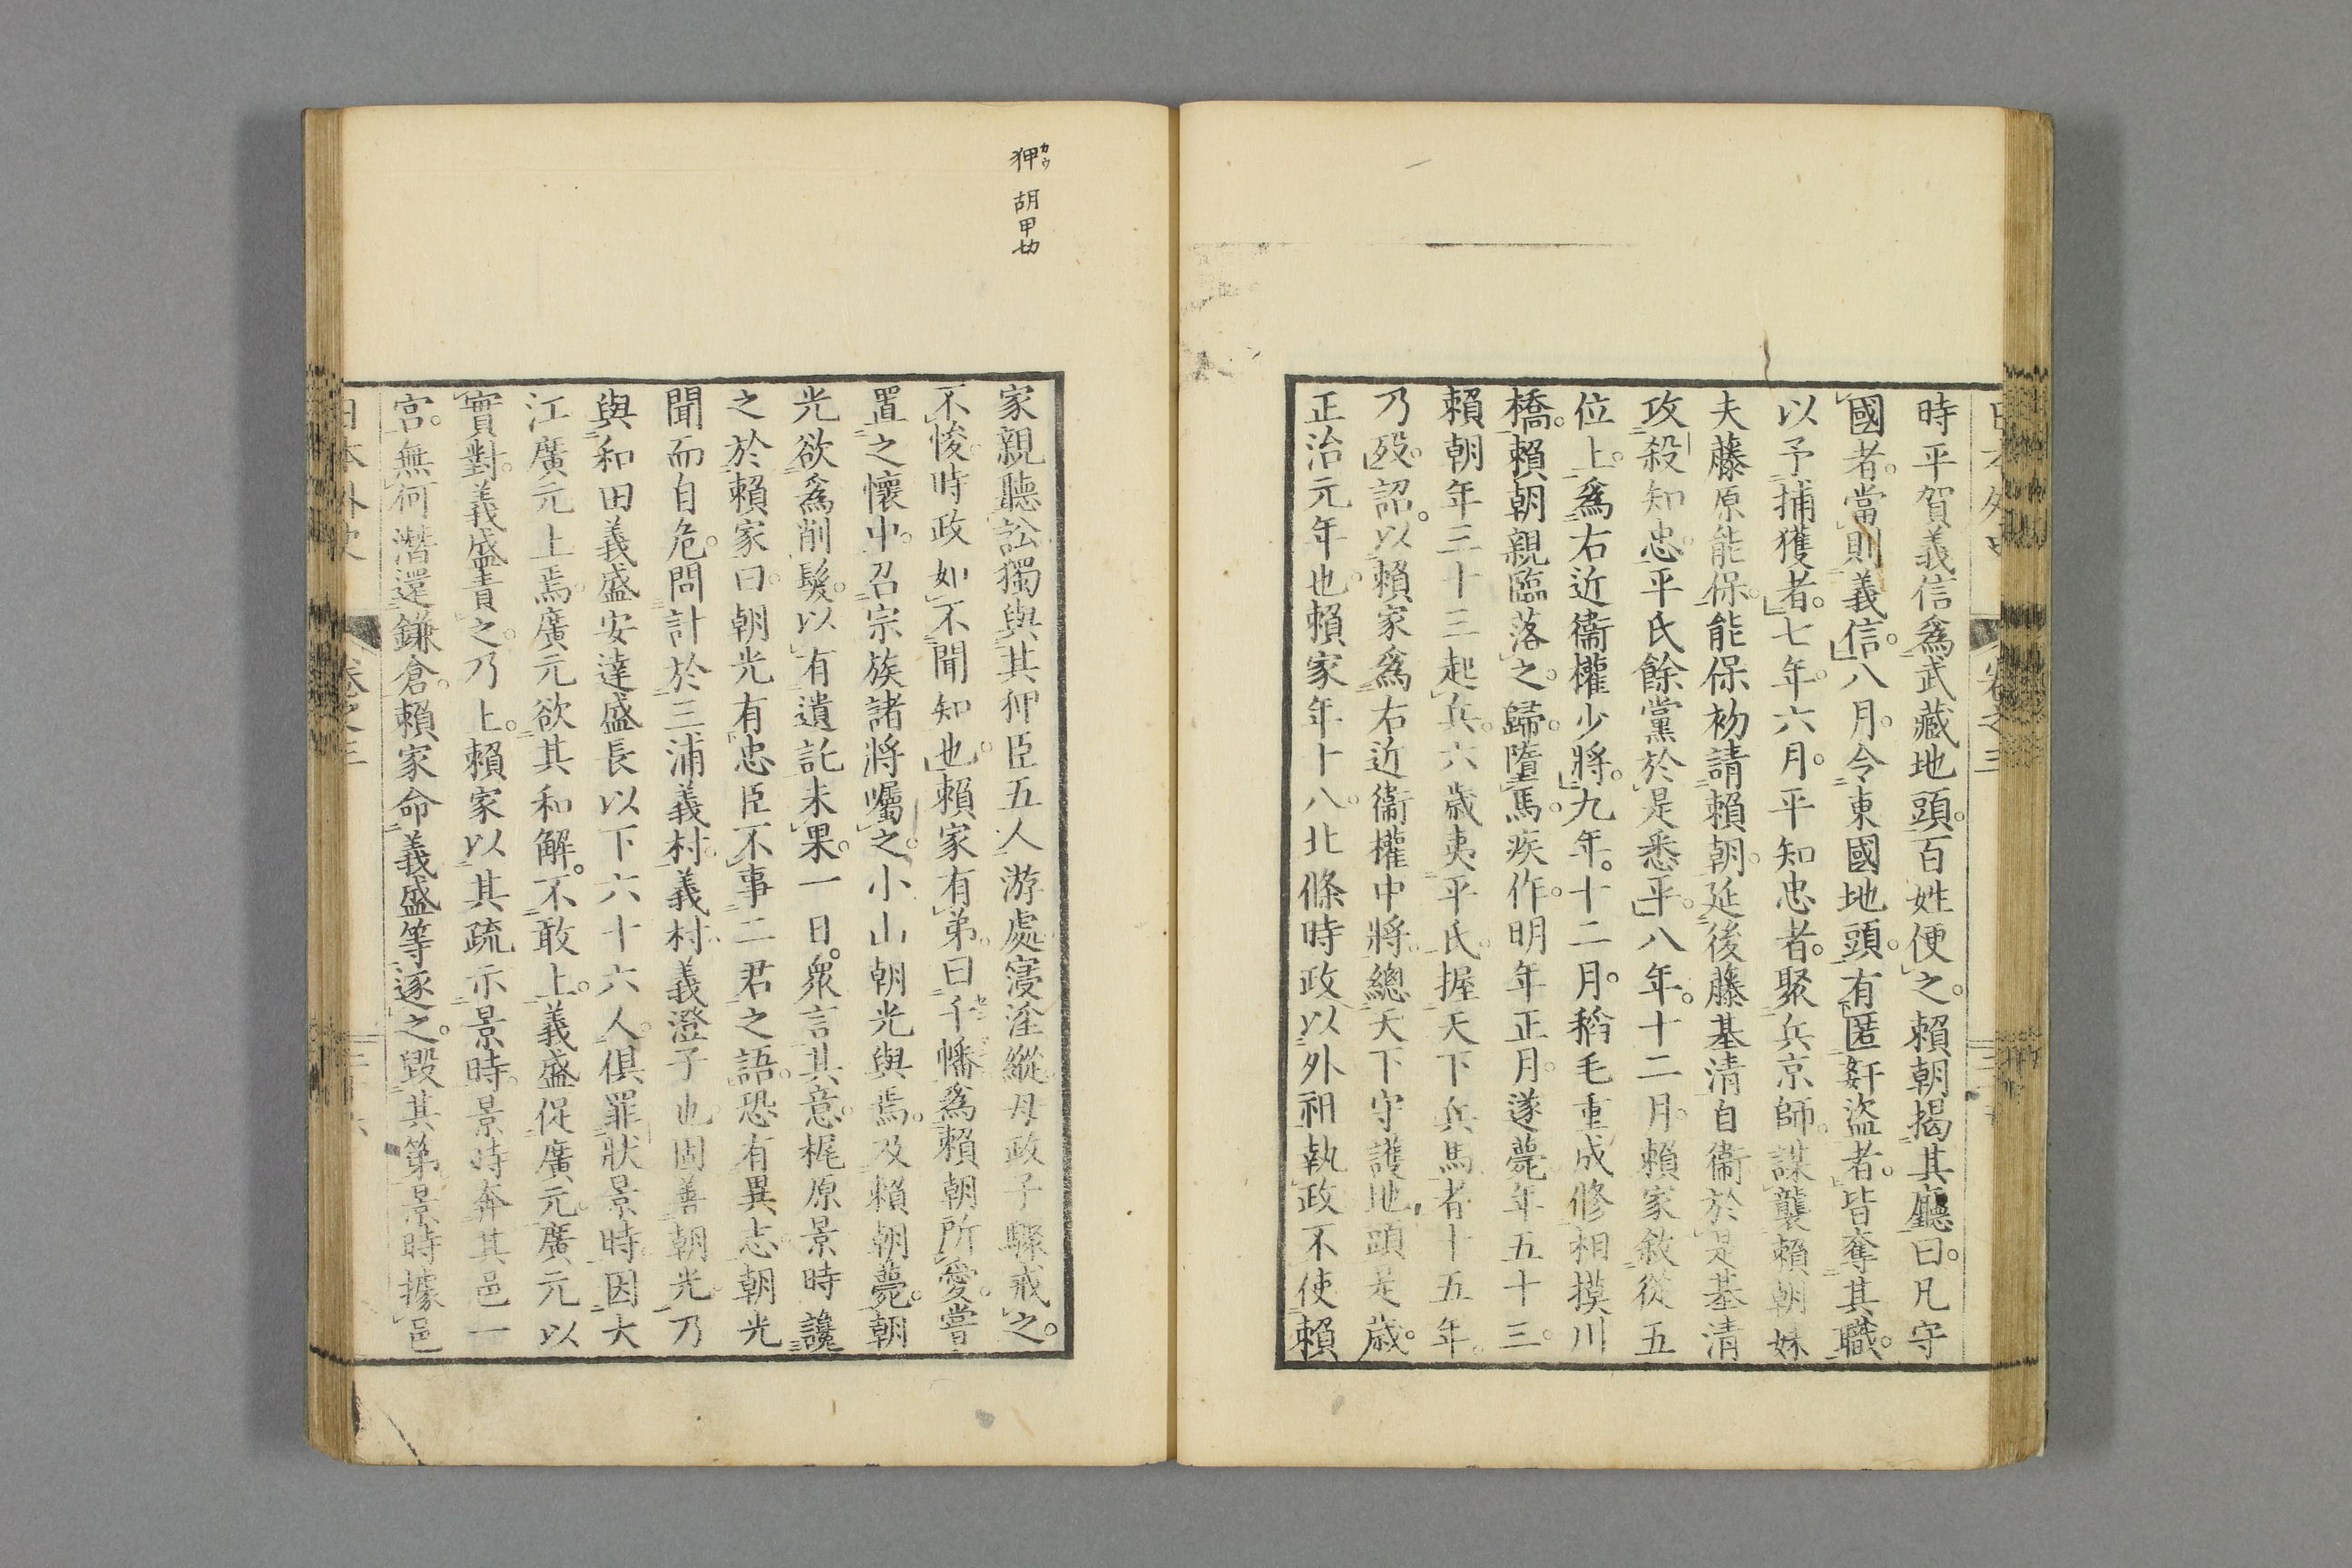 時平賀義信爲武藏地頭。百姓便之。賴朝揭其廳曰。凡守
國者。當則義信。八月。令東國地頭。有匿姧盜者。皆奪其職。
以予捕獲者。七年。六月。平知忠者。聚兵京師。謀襲賴朝妹
夫藤原能保。能保初請賴朝。延後藤基清自衞。於是基清
攻殺知忠。平氏餘黨於是悉平。八年。十二月。賴家敘從五
位上。爲右近衞權少將。九年。十二月。稻毛重成修相摸川
橋。賴朝親臨落之。歸墮馬。疾作。明年正月。遂薨。年五十三。
賴朝年三十三起兵。六歲夷平氏。握天下兵馬者十五年。
乃歿。詔。以賴家爲右近衞權中將。總天下守護地頭。是歲。
正治元年也。賴家年十八。北條時政以外祖執政。不使賴
狎 カウ 胡甲切
家親聽訟。獨與其狎臣五人游處。寖淫縱。母政子驟戒之。
不悛。時政如不聞知也。賴家有弟。曰千幡。爲賴朝所愛。嘗
置之懷中。召宗族諸將囑之。小山朝光與焉。及賴朝薨。朝
光欲爲削髮。以有遺託未果。一日。衆言其意。梶原景時讒
之於賴家曰。朝光有忠臣不事二君之語。恐有異志。朝光
聞而自危。問計於三浦義村。義村。義澄子也。固善朝光。乃
與和田義盛安達盛長以下六十六人。俱罪狀景時。因大
江廣元上焉。廣元欲其和解。不敢上。義盛促廣元。廣元以
實對。義盛責之。乃上。賴家以其疏示景時。景時奔其邑一
宮。無何潛還鎌倉。賴家命義盛等逐之。毀其第。景時據邑
日本外史 卷之三